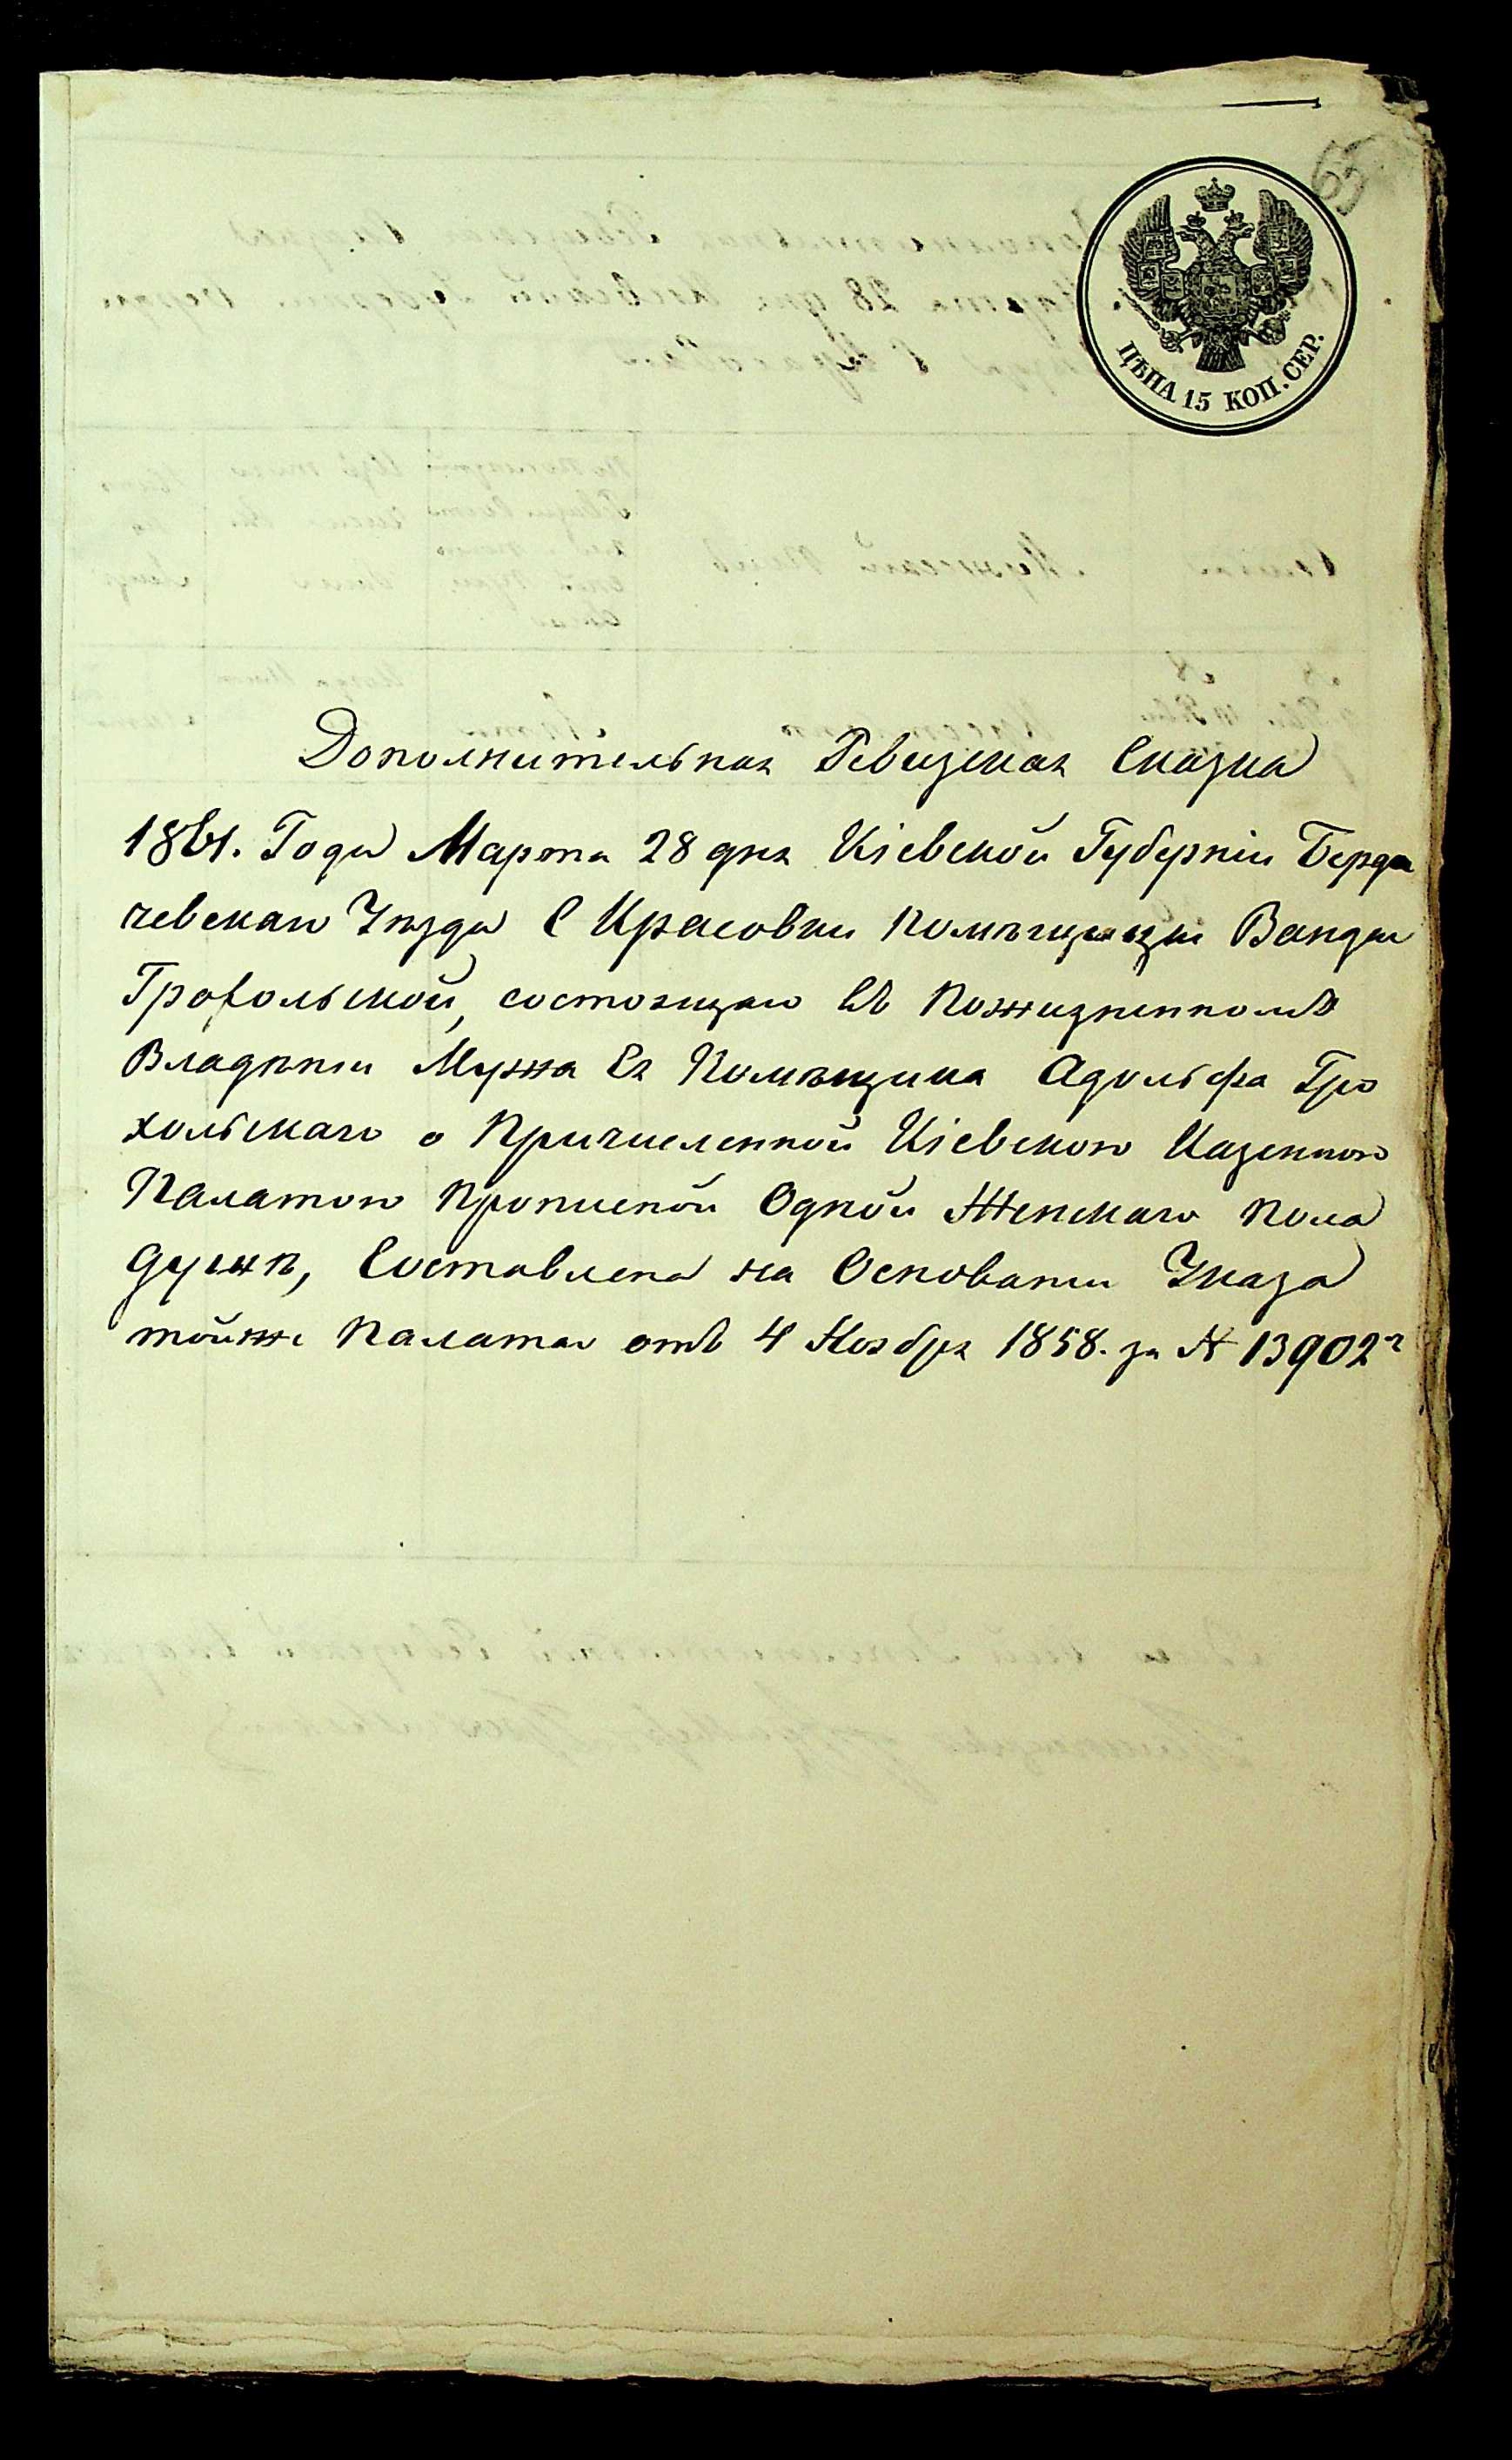 65
ЦѢНА 15 КОП. СЕР.
Дополнительная Ревизская Сказка
1861. Года Марта 28 дня Кіевской Губерніи Берди
чевскаго Уѣзда С Красовки Помѣщицы Ванды
Грохольской, состоящаго въ Пожизненномъ
Владѣніи Мужа Ея Помѣщика Адольфа Гро
хольскаго о Причисленной Кіевскою Казенною
Палатою Прописной Одной Женскаго Пола
душѣ, Составлена на Основаніи Указа
тойже Палаты отъ 4 Ноября 1858. за № 13902